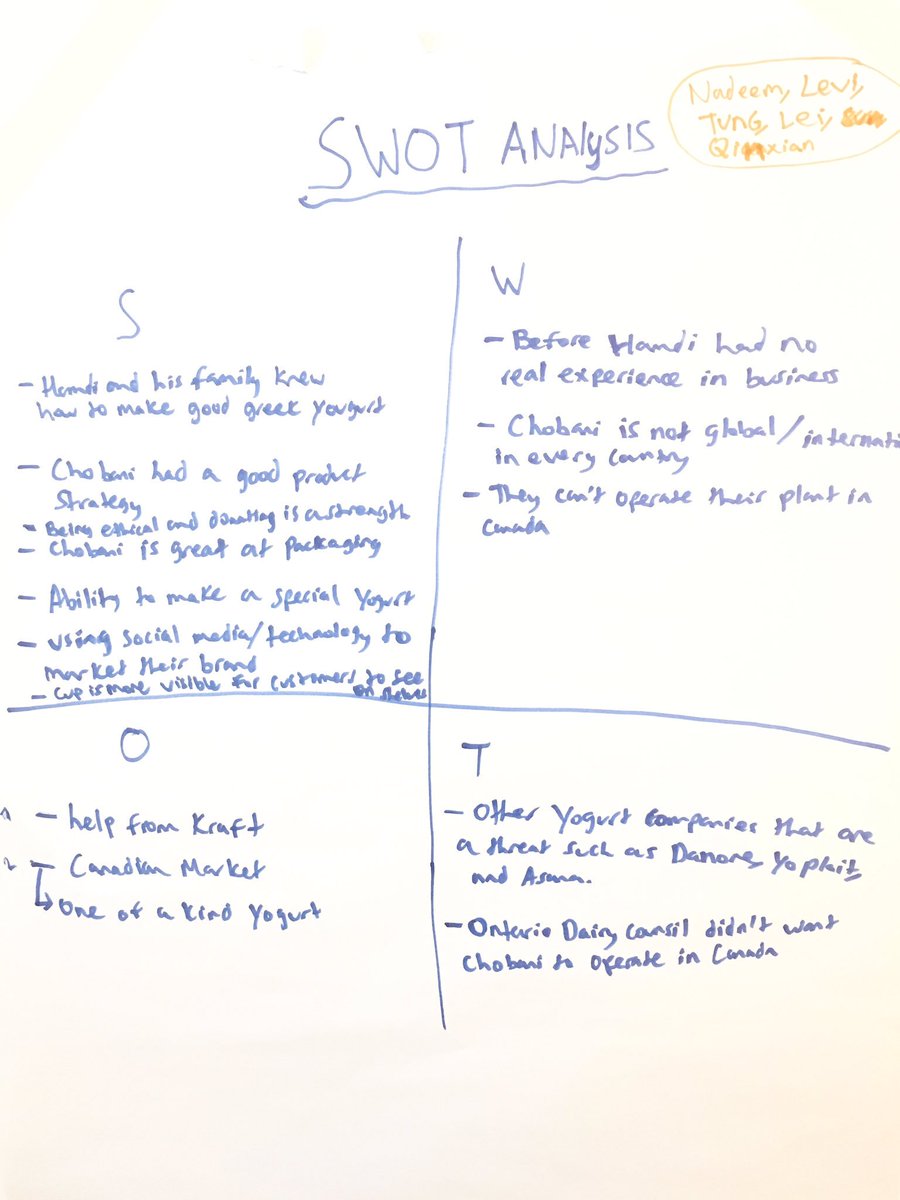 Nadeem, Levi,
Tung, Lei,
Qinxian
SWOT ANAlysis
S
- Hamdi and his family knew
how to make good greek yougurt
- Chobani had a good product
strategy
- Being ethical and donating is a strength
- Chobani is great at packaging
- Ability to make a special Yogurt
- using social media/technology to
market their brand
- Cup is more visible for customers to see
on shelves
W
- Before Hamdi had no
real experience in business
- Chobani is not global/internati
in every country
- They can't operate their plant in
Canada
O
- help from Kraft
- Canadian Market
One of a kind Yogurt
T
- Other Yogurt companies that are
a threat such as Danone, Yoplait,
and Asana.
- Ontario Dairy council didn't want
Chobani to operate in Canada